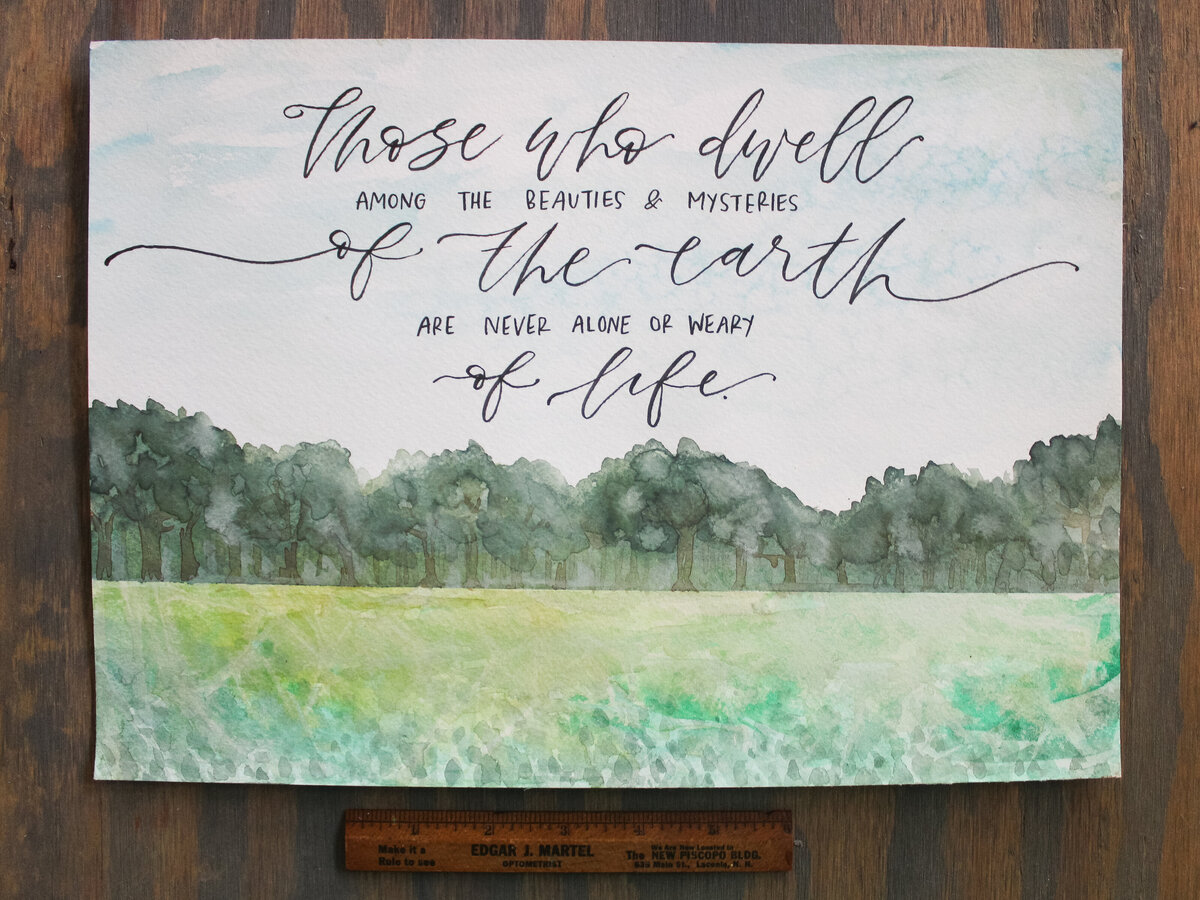 Those who dwell
AMONG THE BEAUTIES & MYSTERIES
of the earth
ARE NEVER ALONE OR WEARY
of life.
1 2 3 4 5
Make it a
Rule to see
EDGAR J. MARTEL
OPTOMETRIST
We Are Now Located in
The NEW PISCOPO BLDG.
635 Main St., Laconia, N. H.